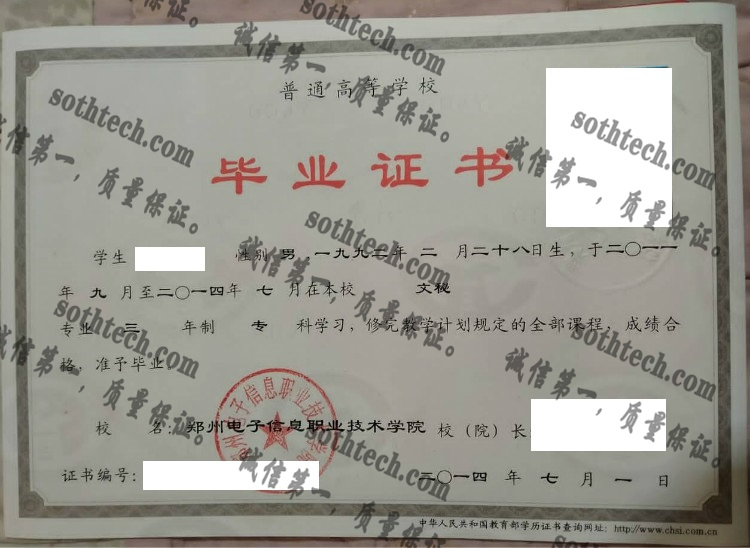 普通高等学校
毕业证书
学生 性别 男 一九九二年 二 月二十八日生，于二〇一一
年 九 月至二〇一四年 七 月在本校 文秘
专业 三 年制 专 科学习，修完教学计划规定的全部课程，成绩合
格，准予毕业
校 名：郑州电子信息职业技术学院 校（院）长
证书编号： 二〇一四 年 七 月 一 日
中华人民共和国教育部学历证书查询网址：http://www.chsi.com.cn
郑州电子信息职业技术学院
sothtech.com
诚信第一，质量保证。
sothtech.com
诚信第一，质量保证。
sothtech.com
诚信第一，质量保证。
sothtech.com
诚信第一，质量保证。
sothtech.com
诚信第一，质量保证。
sothtech.com
诚信第一，质量保证。
sothtech.com
诚信第一，质量保证。